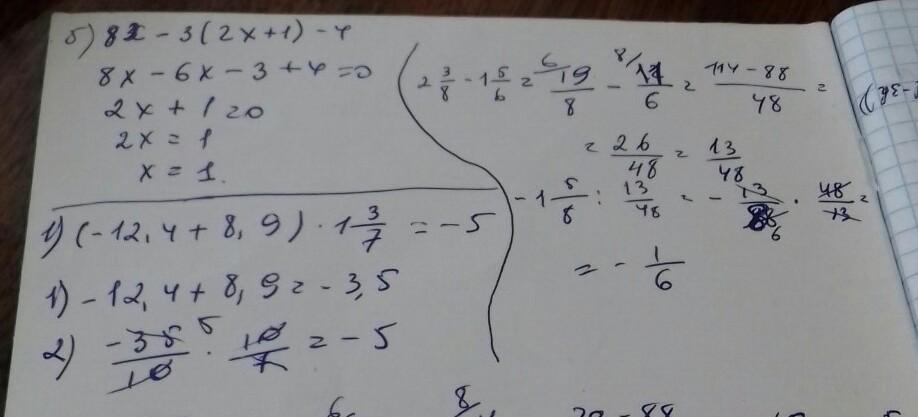 б) 8x - 3(2x+1) - 4
8x - 6x - 3 + 4 = 0
2x + 1 = 0
2x = 1
x = 1.
1) (-12,4 + 8,9) · 1 3/7 = -5
1) -12,4 + 8,9 = -3,5
2) -35/10 5 · 10/7 = -5
2 3/8 - 1 5/6 = 6/ 19/8 - 8/ 11/6 = 114 - 88/48 =
= 26/48 = 13/48
- 1 5/8 : 13/48 = - 13/8 6 · 48/13 =
= - 1/6